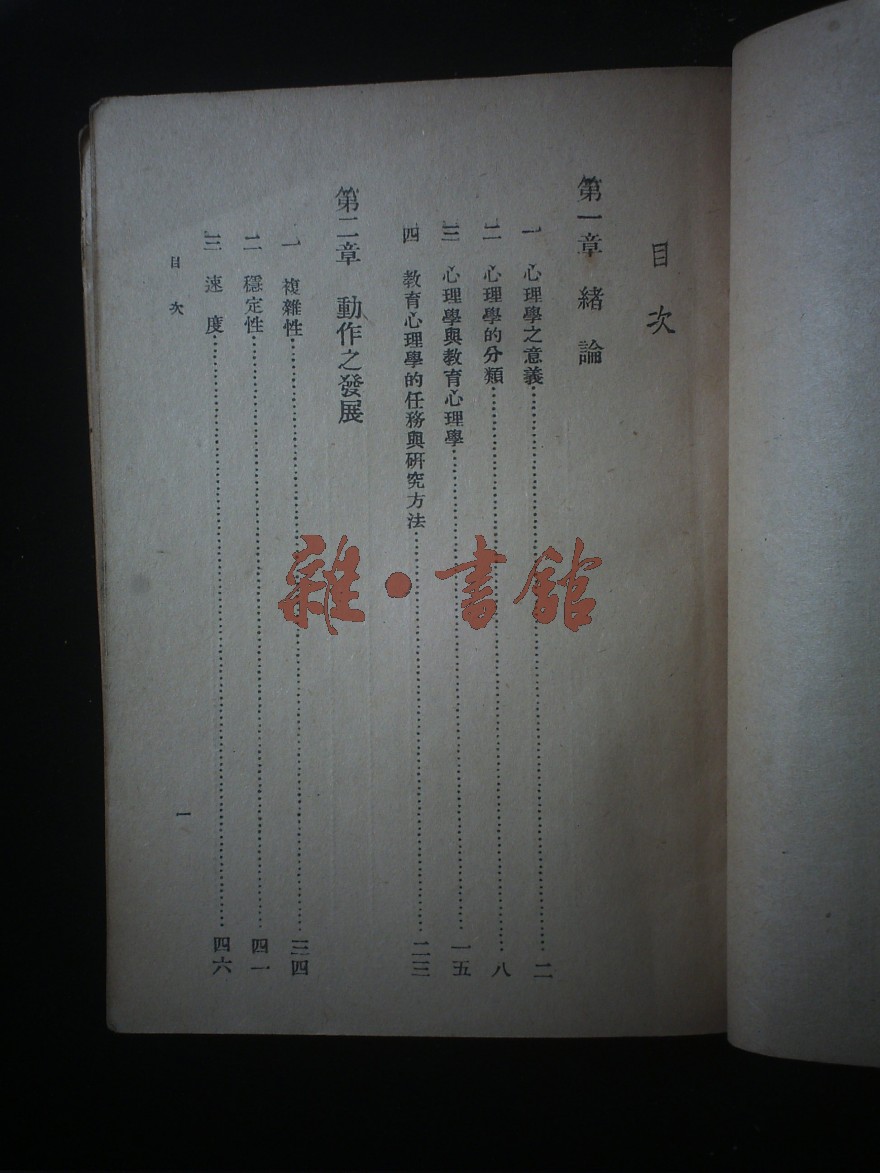 目次
第一章 緒論
一 心理學之意義……………………二
二 心理學的分類……………………八
三 心理學與教育心理學……………………一五
四 教育心理學的任務與研究方法……………………二三
第二章 動作之發展
一 複雜性……………………三四
二 穩定性……………………四一
三 速度……………………四六
目次 一
雜·書館